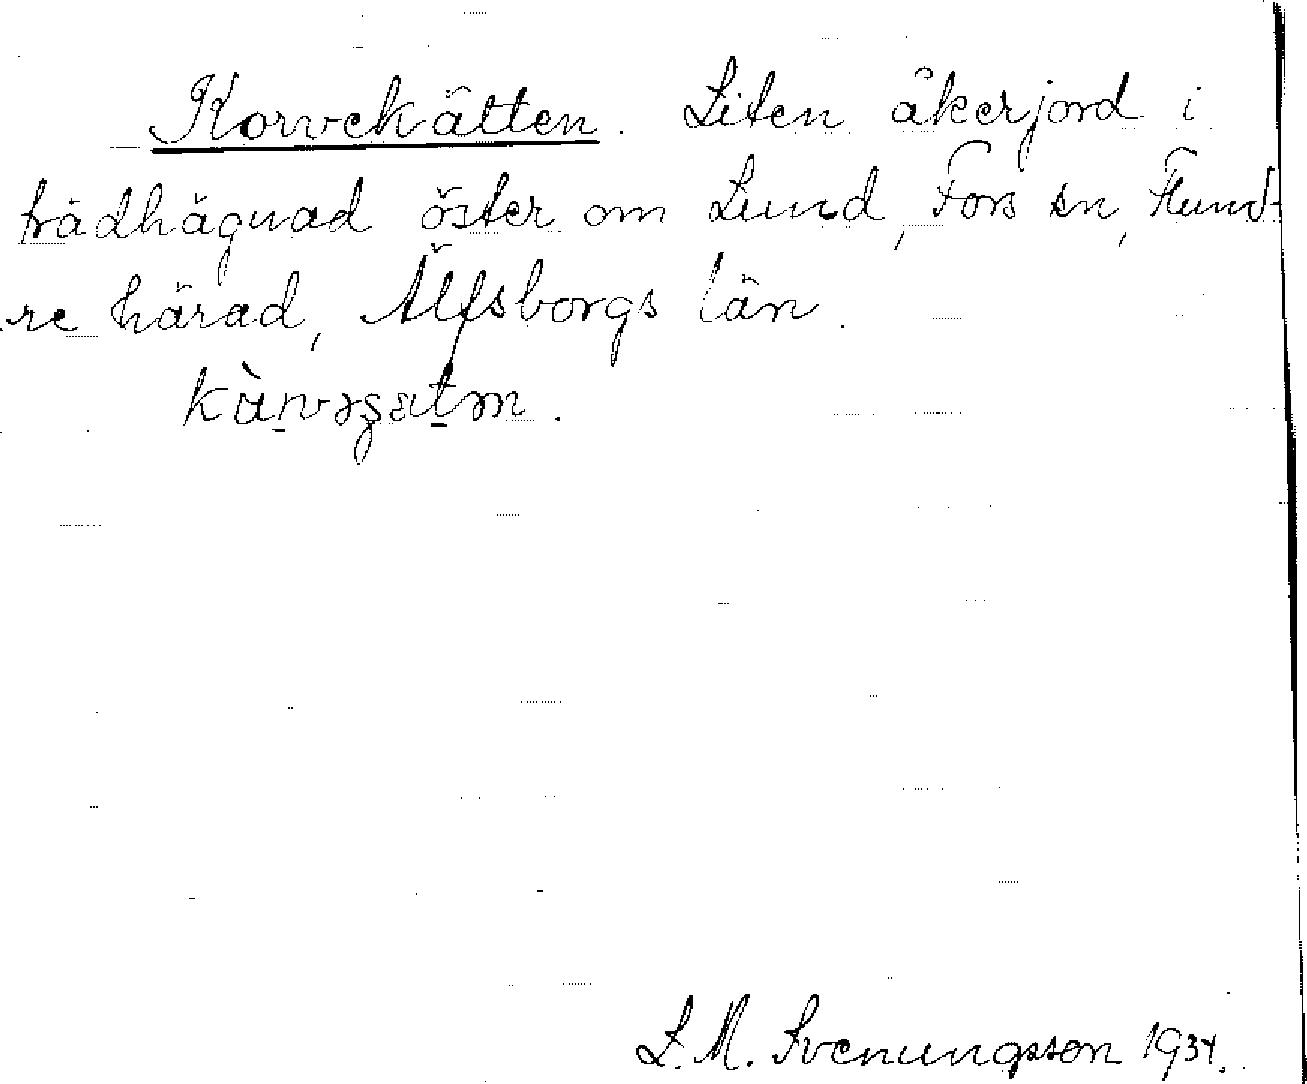 Korvekätten. Liten åkerjord i
trädhägnad öster om Lund, Fors sn, Flund-
re härad, Älfsborgs län.
L. M. Svenungsson 1934.